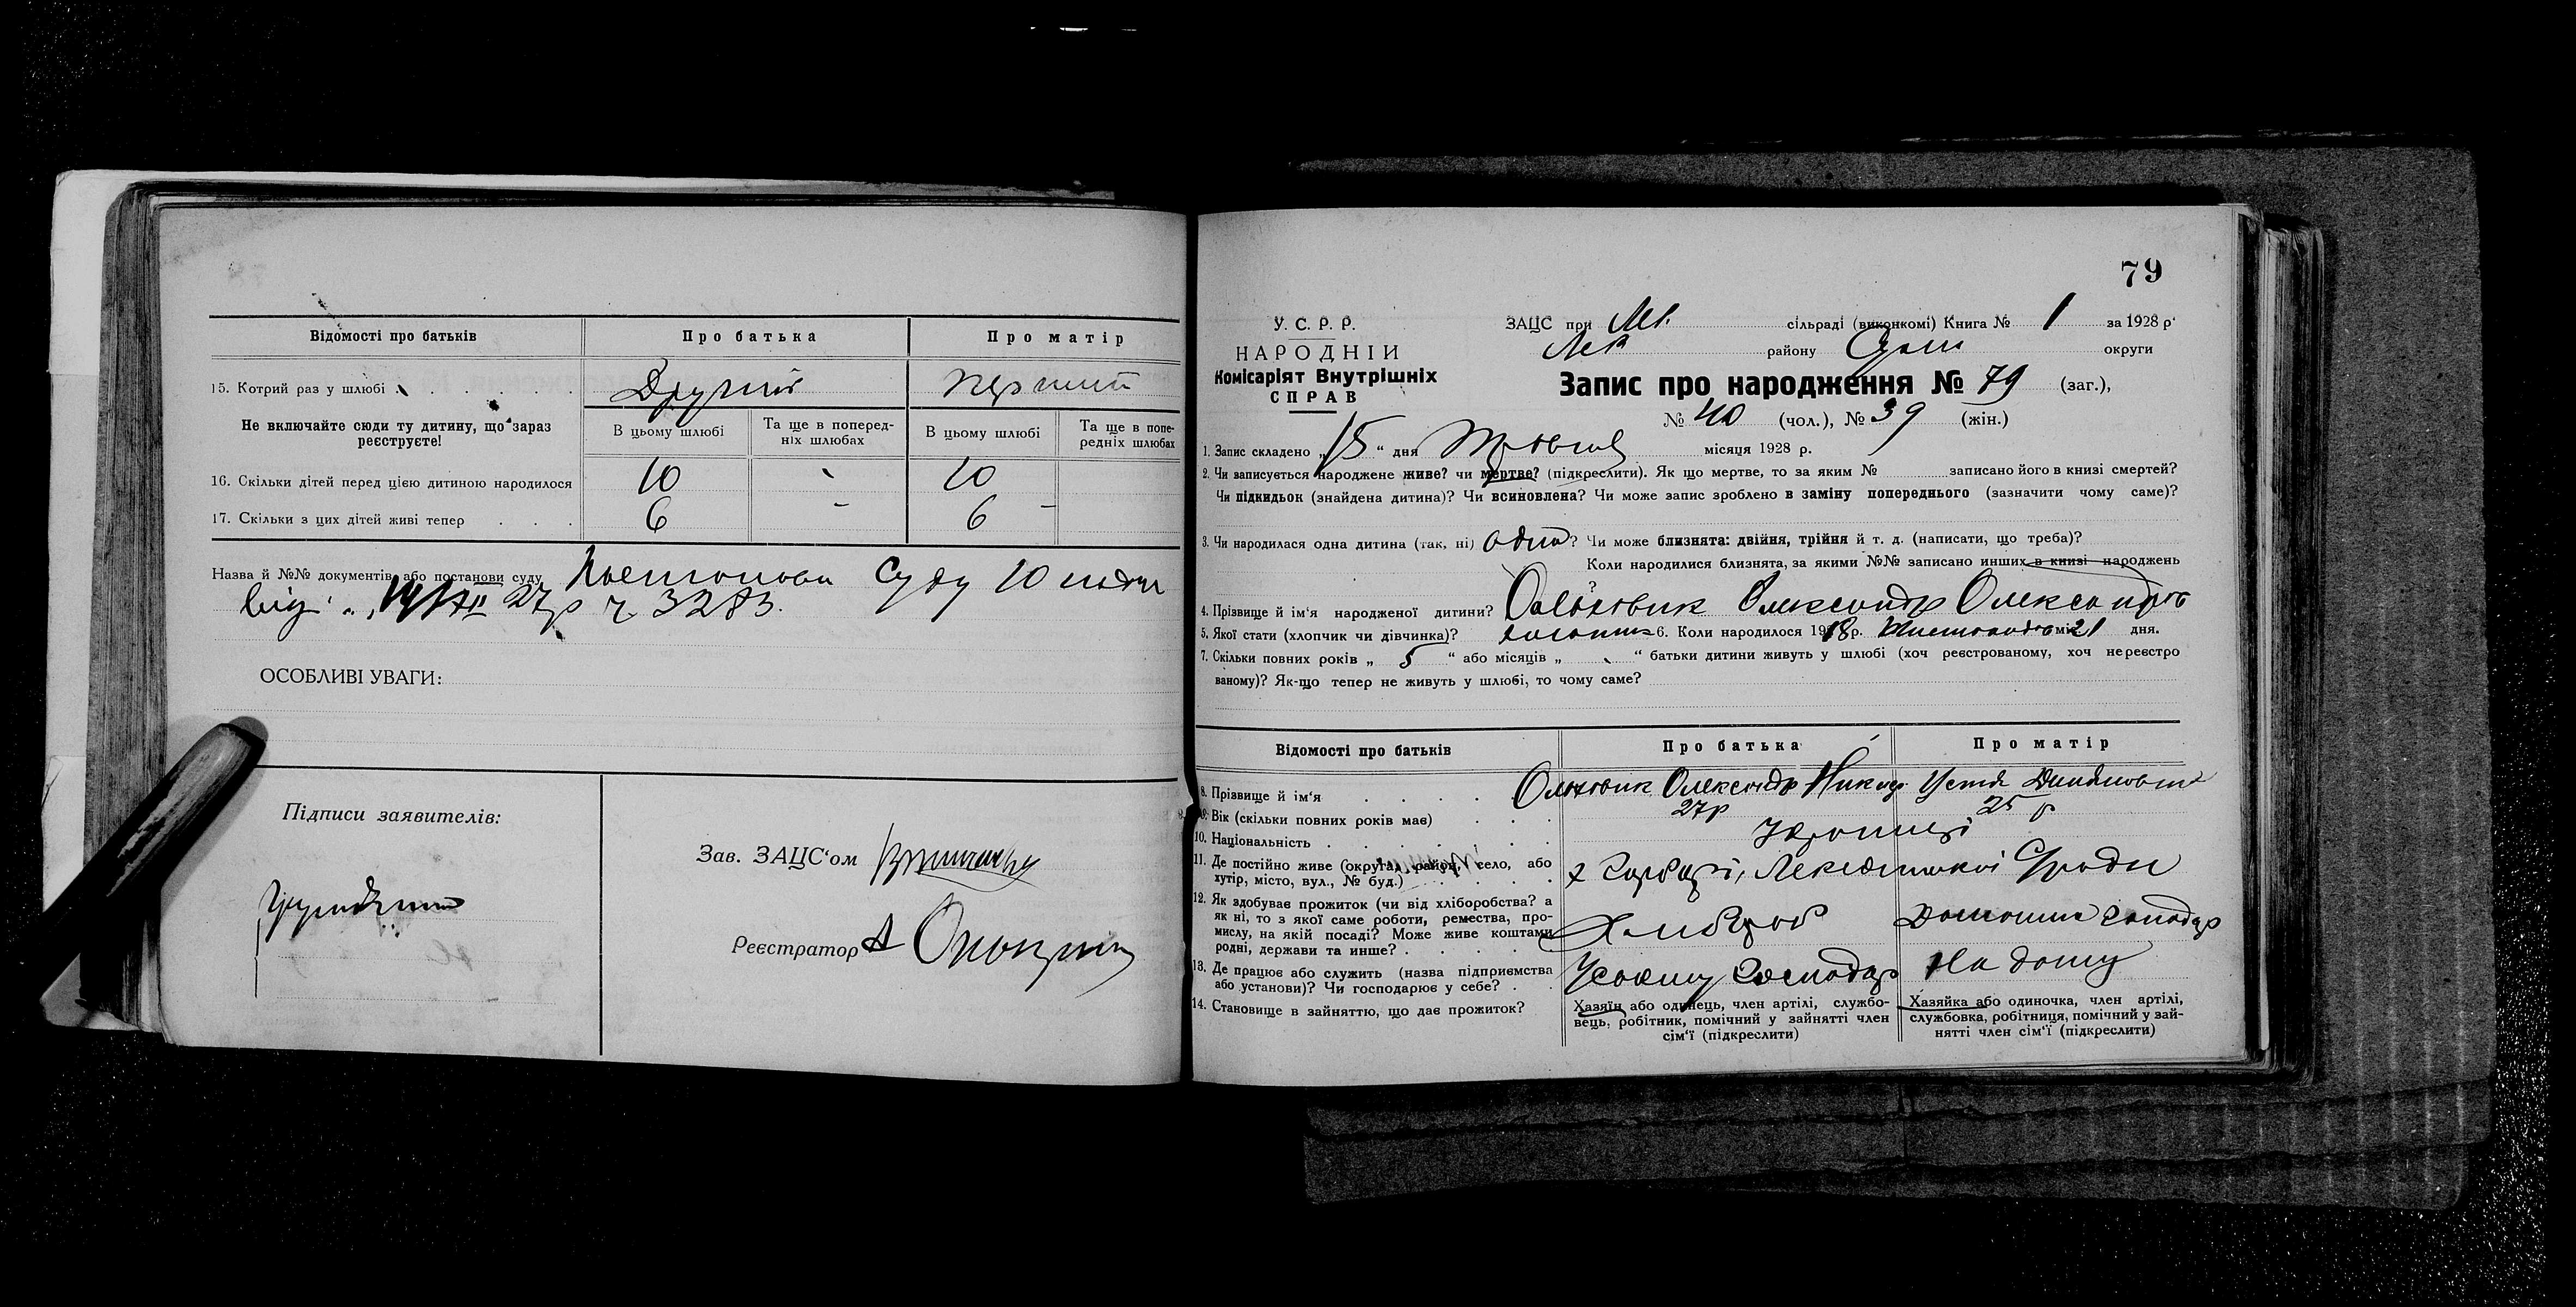 Відомості про батьків
Про батька
Про матір
15. Котрий раз у шлюбі
Другий
перший
Не включайте сюди ту дитину, що зараз реєструєте!
В цьому шлюбі
Та ще в поперед-
ніх шлюбах
В цьому шлюбі
Та ще в попе-
редніх шлюбах
16. Скільки дітей перед цією дитиною народилося
10
10
17. Скільки з цих дітей живі тепер . . .
6 -
6 -
Назва й №№ документів або постанови суду Постанова Суду 10
від 27р 3283.
ОСОБЛИВІ УВАГИ:
Підписи заявителів:
Зав. ЗАЦС‘ом
Реєстратор
79
У. С. Р. Р.
НАРОДНІЙ
Комісаріят Внутрішніх
СПРАВ
ЗАЦС при сільраді (виконкомі) Книга № 1 за 1928 р.
району округи
Запис про народження № 79 (заг.),
№ 40 (чол.), № 39 (жін.)
1. Запис складено „15“ дня Травня місяця 1928 р.
2. Чи записується народжене живе? чи мертве? (підкреслити). Як що мертве, то за яким № записано його в книзі смертей?
Чи підкидьок (знайдена дитина)? Чи всиновлена? Чи може запис зроблено в заміну попереднього (зазначити чому саме)?
3. Чи народилася одна дитина (так, ні) одна? Чи може близнята: двійня, трійня й т. д. (написати, що треба)?
Коли народилися близнята, за якими №№ записано инших в книзі народжень
?
4. Прізвище й ім‘я народженої дитини? Олександр
5. Якої стати (хлопчик чи дівчинка)? 6. Коли народилося 1918р. міс. 21 дня.
7. Скільки повних років „ 5 “ або місяців „ “ батьки дитини живуть у шлюбі (хоч реєстрованому, хоч нереєстро
ваному)? Як-що тепер не живуть у шлюбі, то чому саме?
Відомості про батьків
Про батька
Про матір
8. Прізвище й ім‘я . . . .
Олександр
Устя
9. Вік (скільки повних років має) . . .
27р
25 р
10. Національність . . . . . . .
Українці
11. Де постійно живе (округа, район, село, або
хутір, місто, вул., № буд.) . . . .
12. Як здобуває прожиток (чи від хліборобства? а
як ні, то з якої саме роботи, ремества, про-
мислу, на якій посаді? Може живе коштами
родні, держави та инше? . . . .
Хлібороб
Домашнє
13. Де працює або служить (назва підприємства
або установи)? Чи господарює у себе? . .
На дому
14. Становище в зайняттю, що дає прожиток?
Хазяїн або одинець, член артілі, службо-
вець, робітник, помічний у зайнятті член
сім‘ї (підкреслити)
Хазяйка або одиночка, член артілі,
службовка, робітниця, помічний у зай-
нятті член сім‘ї (підкреслити)